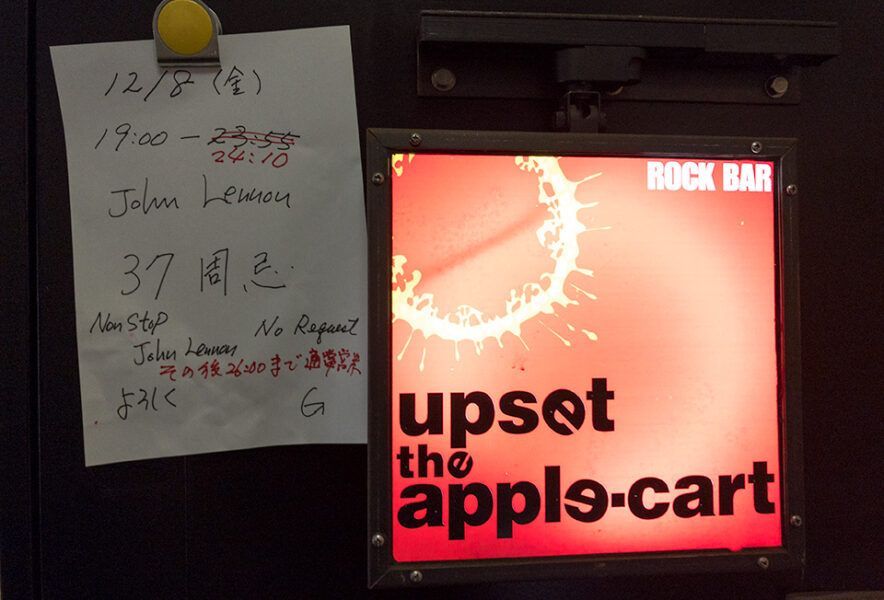 12/8 (金)
19:00 — 23:55
24:10
John Lennon
37周忌
Non Stop
No Request
John Lennon
その後26:00まで通常営業
よろしく
G
ROCK BAR
upset
the
apple-cart